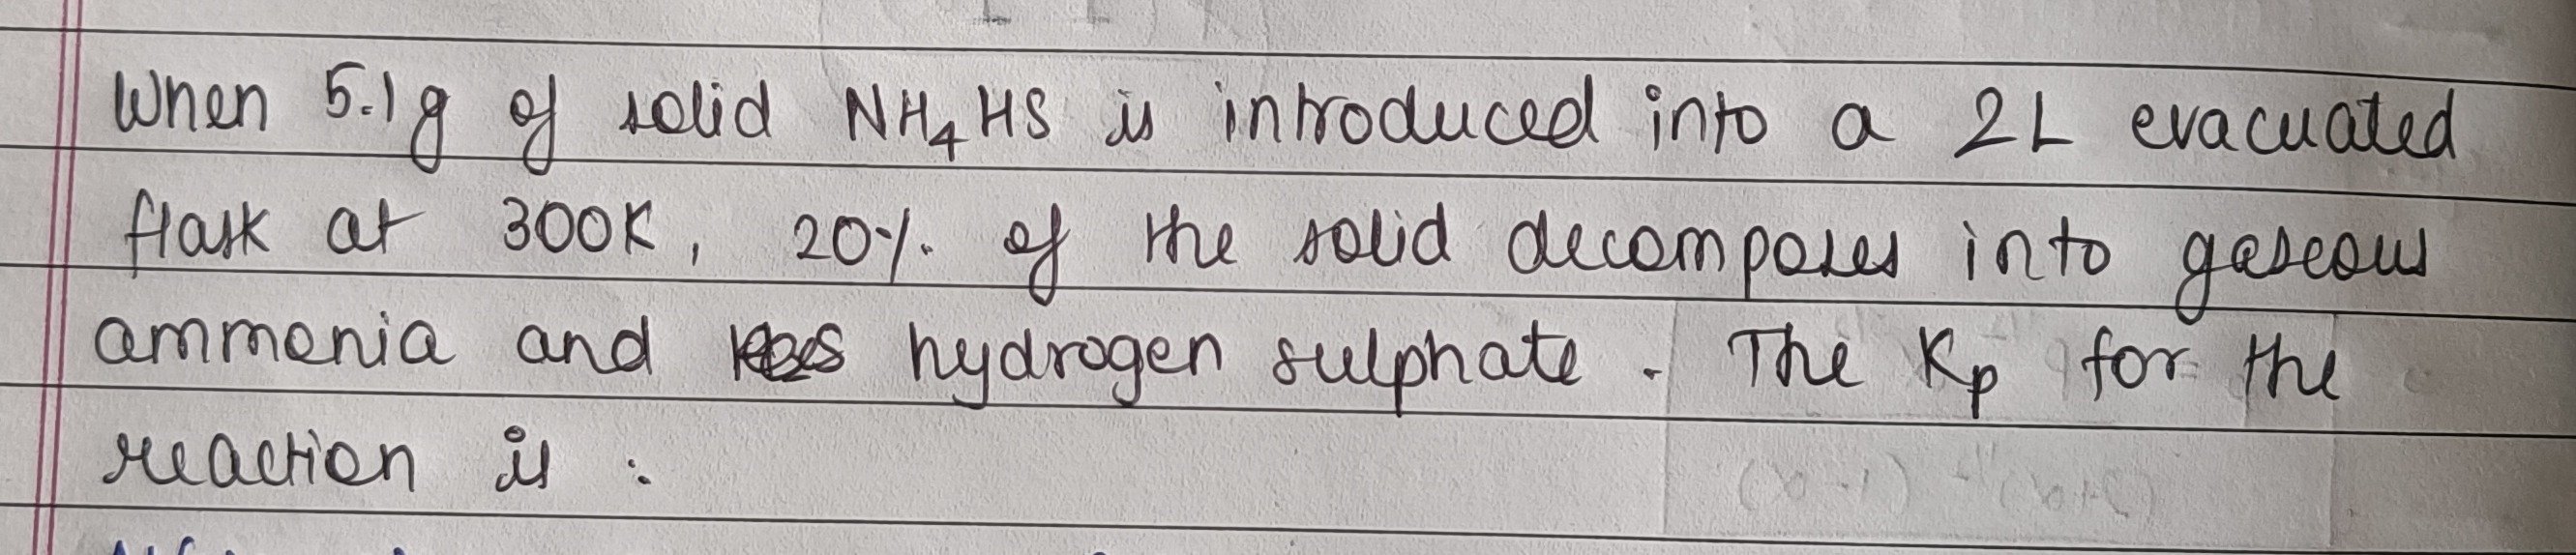 When 5.1g of solid NH4HS is introduced into a 2L evacuated
flask at 300K, 20%. of the solid decomposes into gaseous
ammonia and hydrogen sulphate. The Kp for the
reaction is :